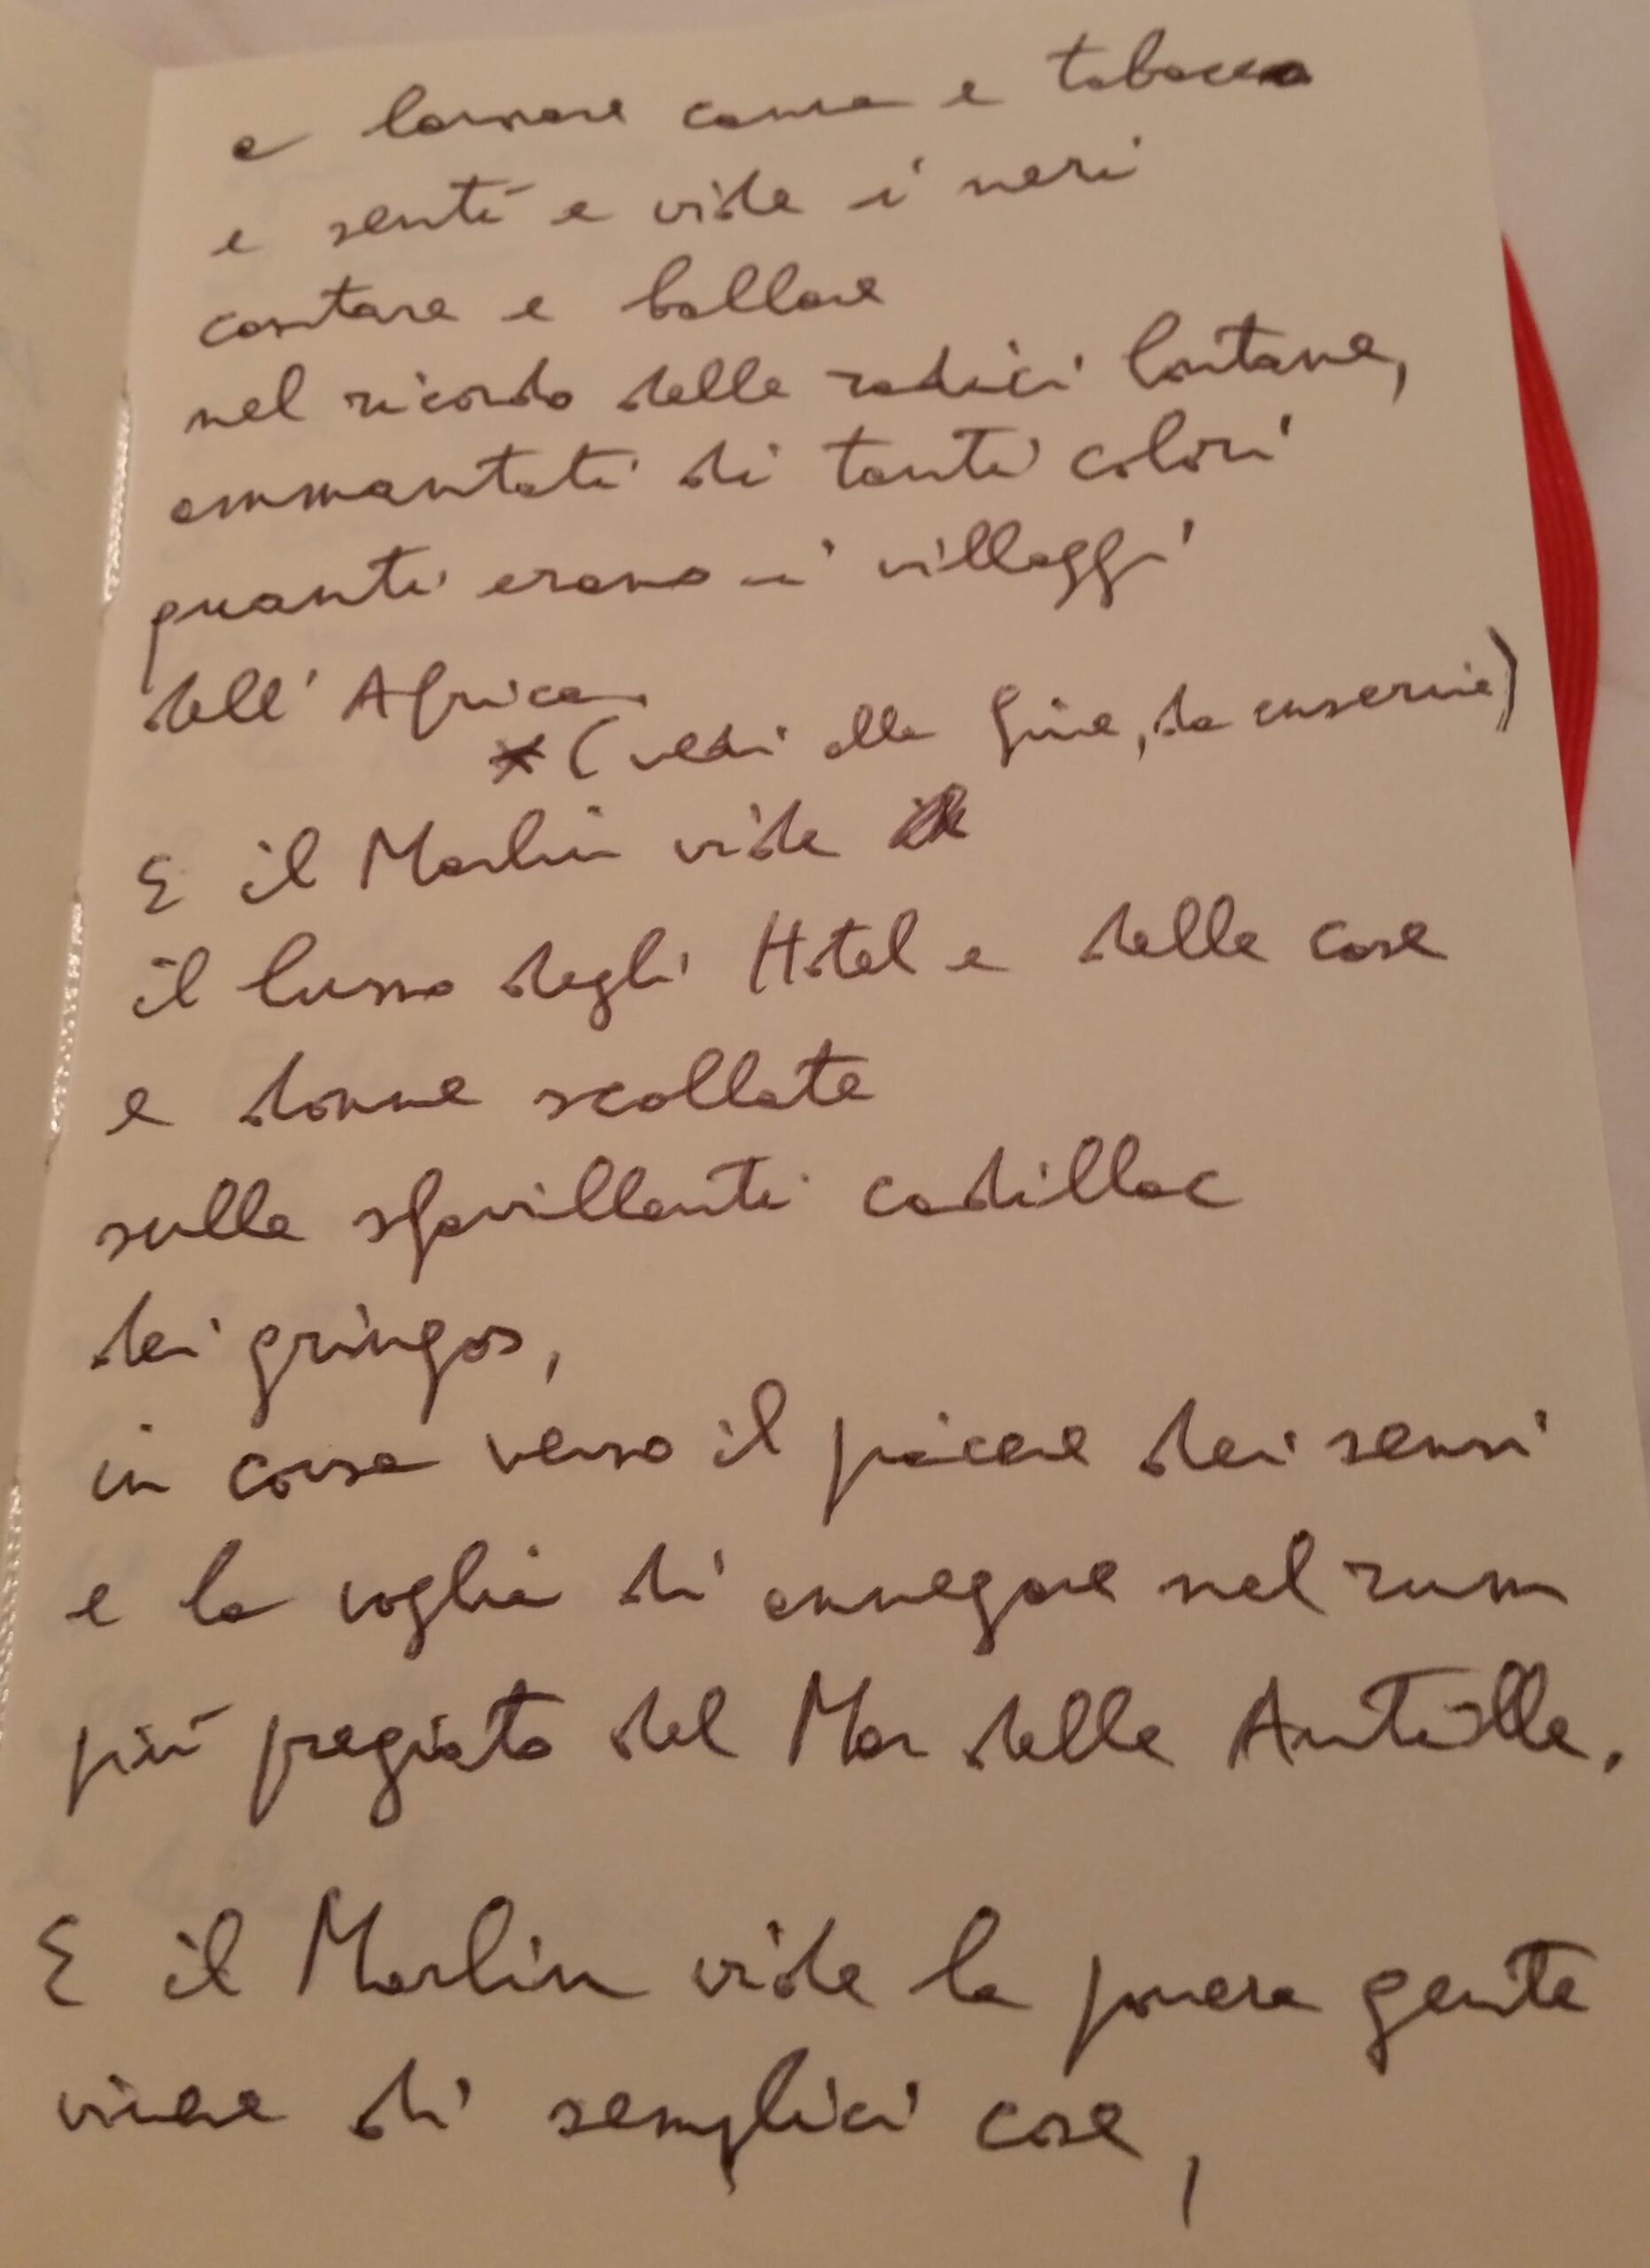 a lavorare canna e tabacco
e sentì e vide i neri
cantare e ballare
nel ricordo delle radici lontane,
ammantati di tanti colori
quanti erano i villaggi
dell'Africa
*(vedi alla fine, da inserire)
E il Marlin vide
il lusso degli Hotel e delle case
e donne scollate
sulle sfavillanti cadillac
dei gringos,
in corsa verso il piacere dei sensi
e la voglia di annegare nel rum
più pregiato del Mar delle Antille.
E il Marlin vide la povera gente
vivere di semplici cose,